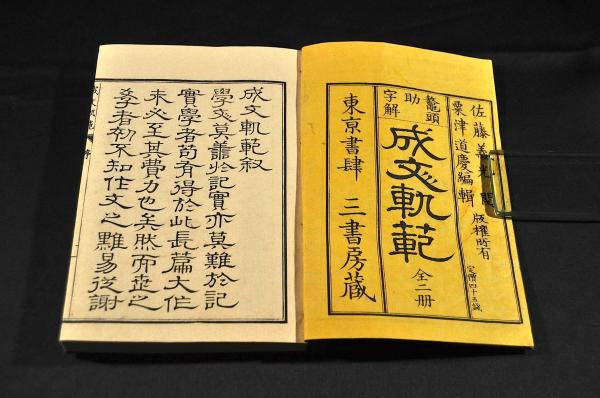 佐藤義光 閲
粟津道慶編輯
版權所有
定價四十五錢
鼇頭
助
字解
成文軌範
全二册
東京書肆 三書房藏
成文軌範叙
學文莫善於記實亦莫難於記
實學者苟有得於此長篇大作
未必至其費力也矣然而世之
學者初不知作文之難易從謝